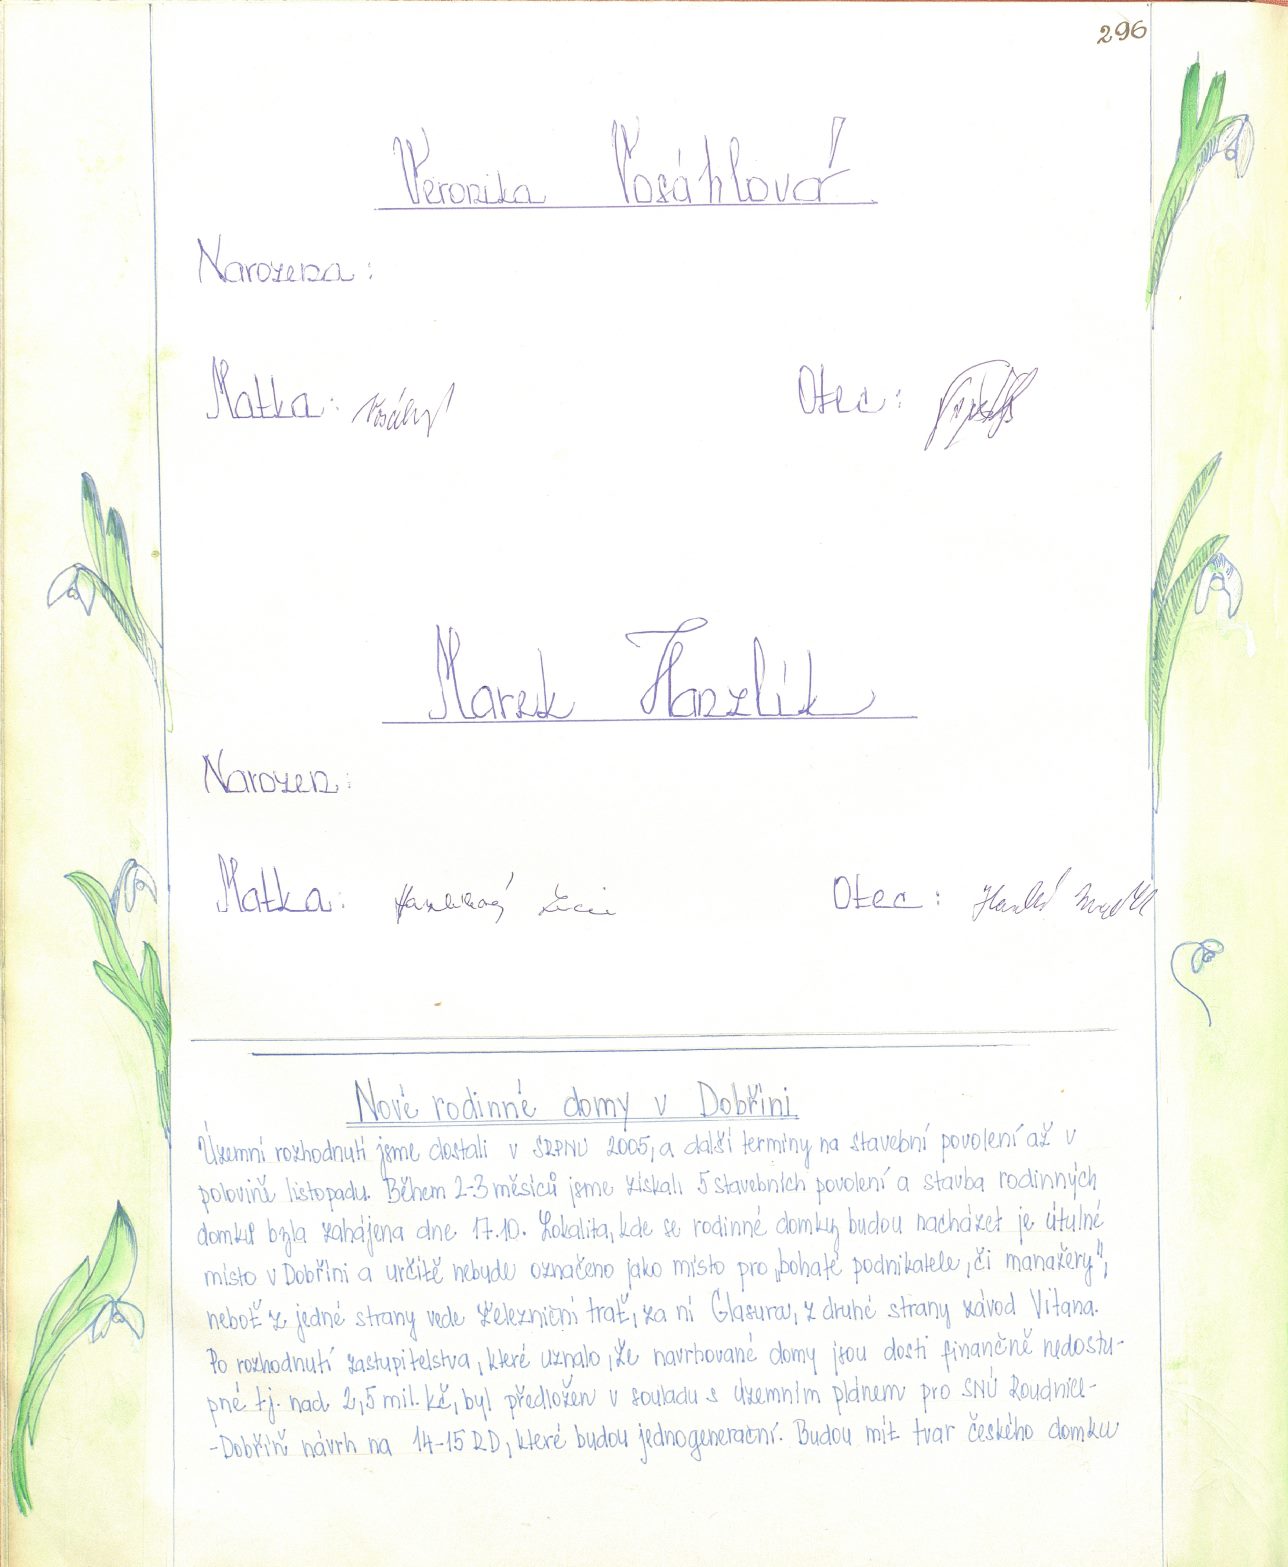 296
Veronika Vosáhlová
Narozena:
Matka: Otec:
Marek Hanzlík
Narozen:
Matka: Hanzlíková Lucie Otec:
Nové rodinné domy v Dobříni
Územní rozhodnutí jsme dostali v SRPNU 2005, a další termíny na stavební povolení až v
polovině listopadu. Během 2-3 měsíců jsme získali 5 stavebních povolení a stavba rodinných
domků byla zahájena dne 17.10. Lokalita, kde se rodinné domky budou nacházet je útulné
místo v Dobříni a určitě nebude označeno jako místo pro „bohaté podnikatele, či manažery",
neboť z jedné strany vede železniční trať, za ní Glasura, z druhé strany závod Vitana.
Po rozhodnutí zastupitelstva, které uznalo, že navrhované domy jsou dosti finančně nedostu-
pné tj. nad 2,5 mil. kč, byl předložen v souladu s územním plánem pro SNÚ Roudnice-
-Dobříň návrh na 14-15 RD, které budou jednogenerační. Budou mít tvar českého domku